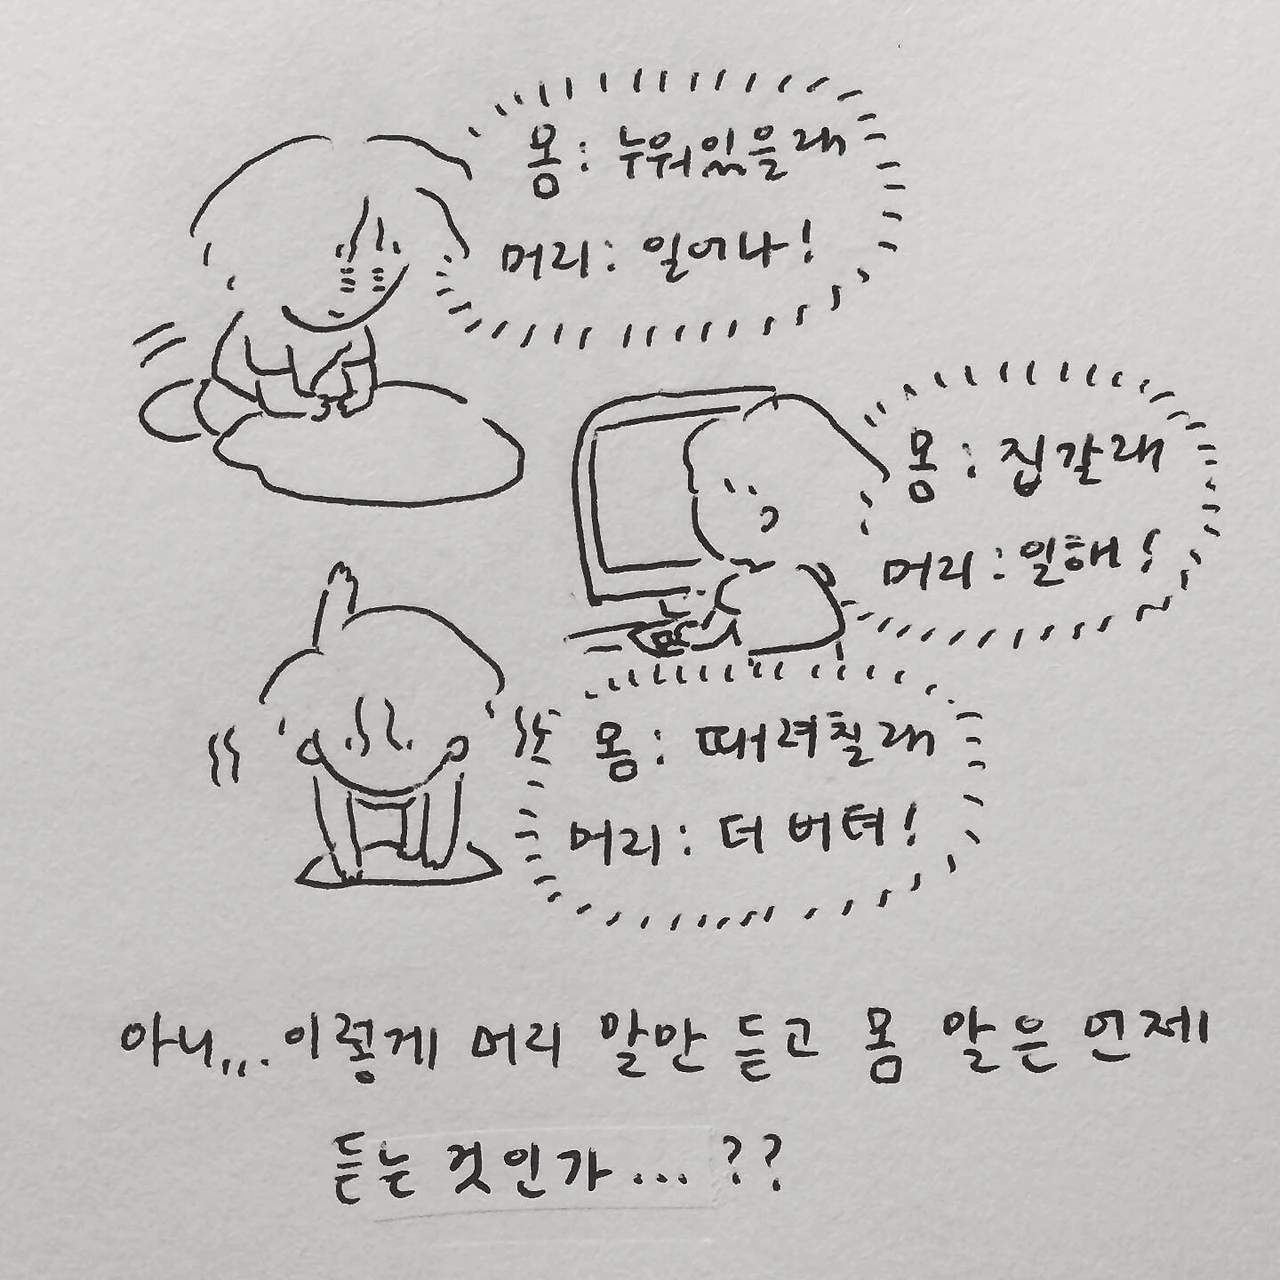 몸: 누워있을래
머리: 일어나!
몸: 집갈래
머리: 일해!
몸: 때려칠래
머리: 더 버텨!
아니... 이렇게 머리 말만 듣고 몸 말은 언제
듣는 것인가...??